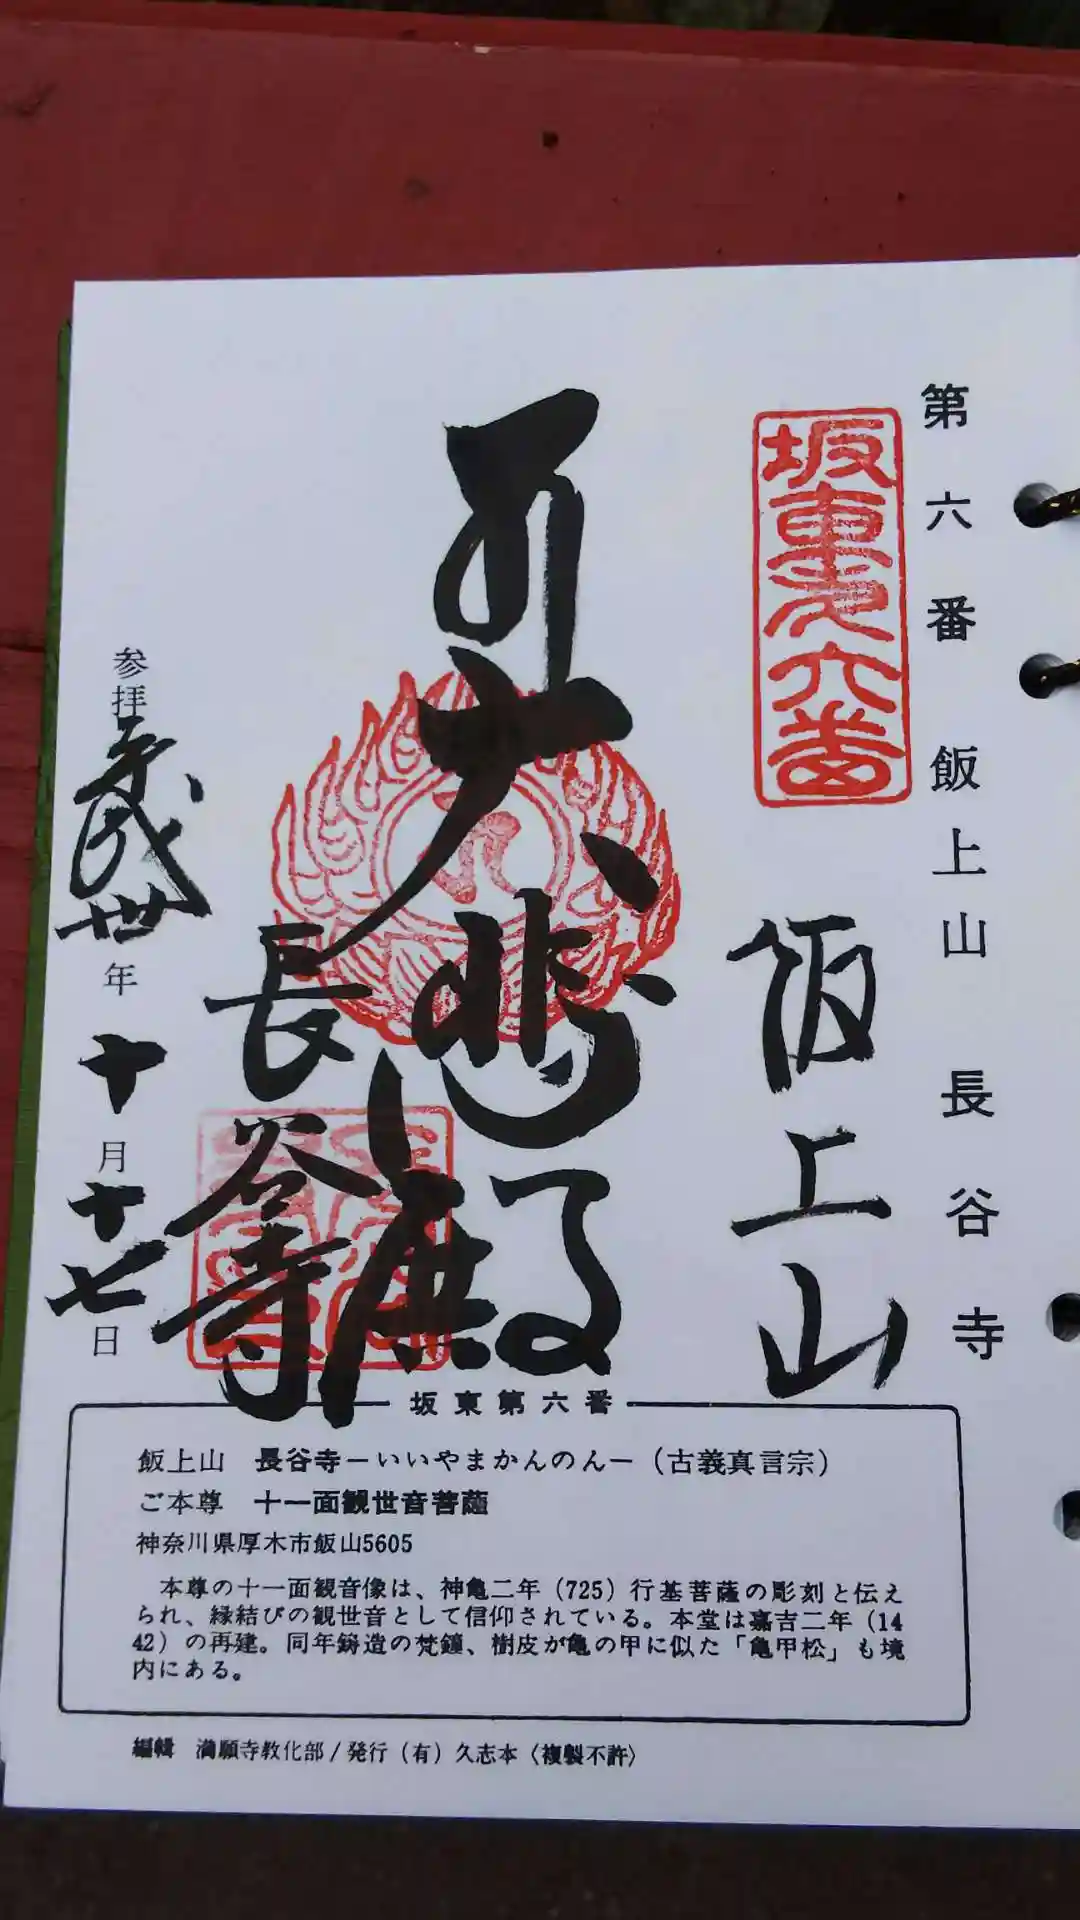 第六番 飯上山 長谷寺
坂東第六番
飯上山
大悲殿
長谷寺
参拝平成廿年十月十七日
坂東第六番
飯上山 長谷寺－いいやまかんのん－（古義真言宗）
ご本尊 十一面観世音菩薩
神奈川県厚木市飯山5605
本尊の十一面観音像は、神亀二年（725）行基菩薩の彫刻と伝え
られ、縁結びの観世音として信仰されている。本堂は嘉吉二年（14
42）の再建。同年鋳造の梵鐘、樹皮が亀の甲に似た「亀甲松」も境
内にある。
編輯 満願寺教化部/発行（有）久志本〈複製不許〉